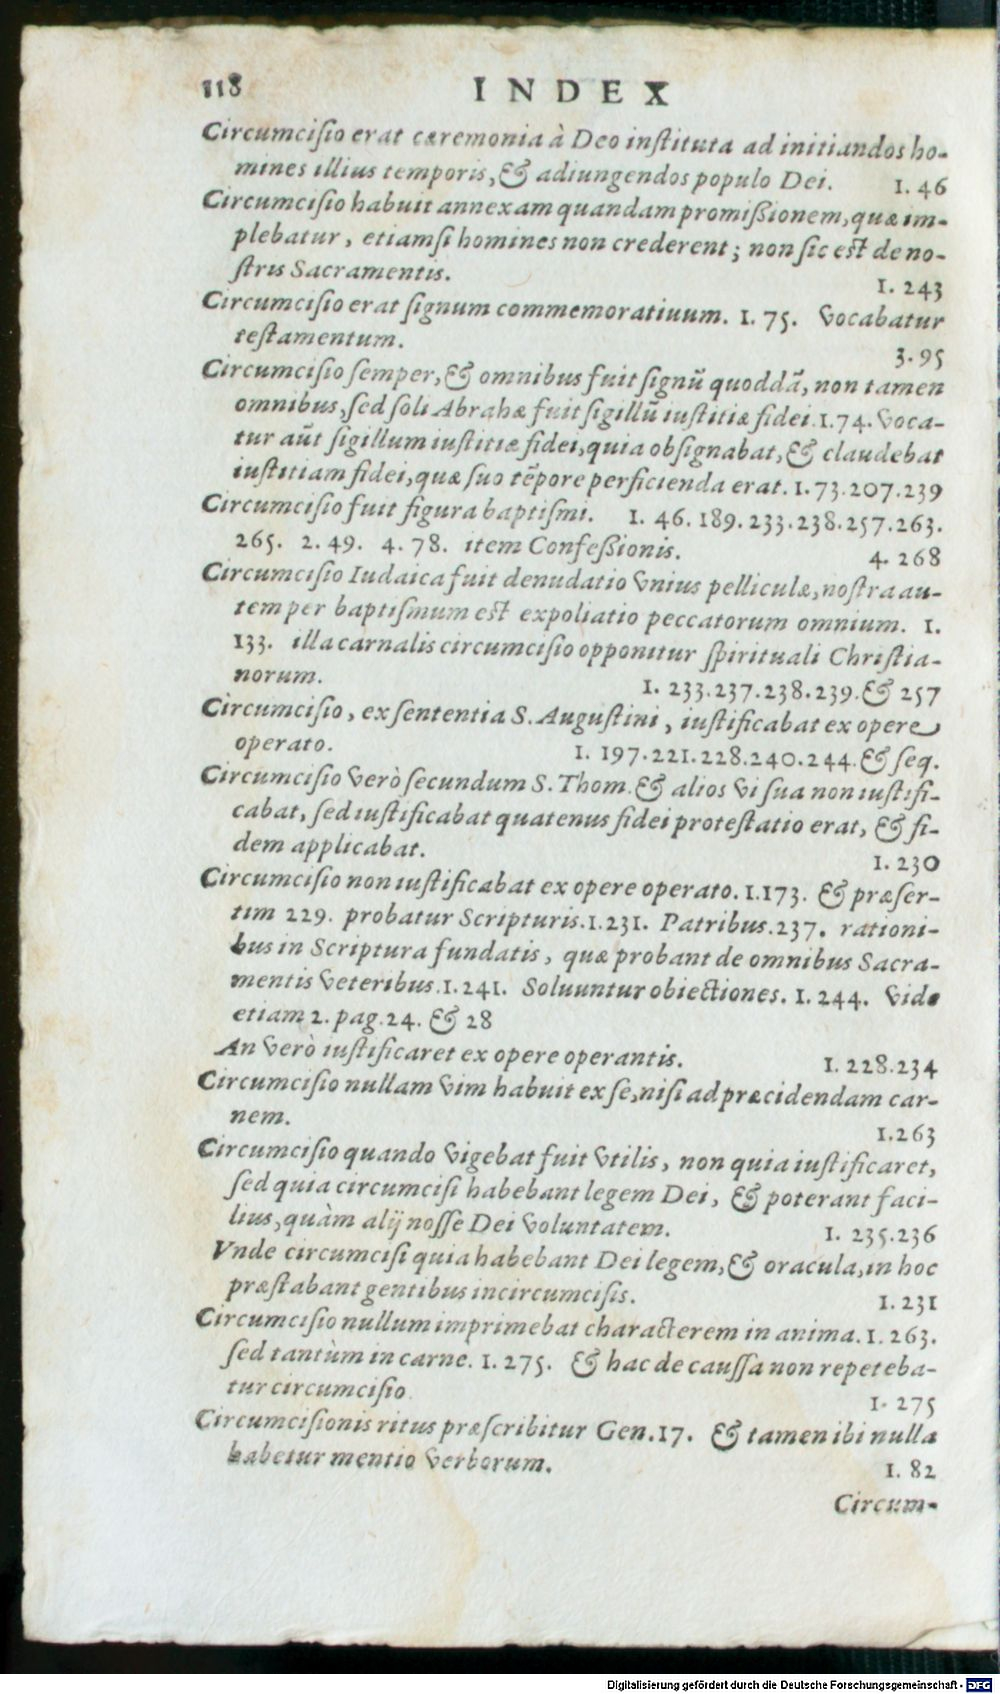 118 INDEX
Circumciſio erat cæremonia à Deo inſtituta ad initiandos ho-
mines illius temporis, & adiungendos populo Dei. 1. 46
Circumciſio habuit annexam quandam promiſsionem, quæ im-
plebatur, etiamſi homines non crederent; non ſic eſt de no-
ſtris Sacramentis. 1. 243
Circumciſio erat ſignum commemoratiuum. 1. 75. vocabatur
teſtamentum. 3. 95
Circumciſio ſemper, & omnibus fuit ſignū quoddā, non tamen
omnibus, ſed ſoli Abrahæ fuit ſigillū iuſtitiæ fidei. 1.74. voca-
tur aūt ſigillum iuſtitiæ fidei, quia obſignabat, & claudebat
iuſtitiam fidei, quæ ſuo tēpore perficienda erat. 1. 73. 207. 239
Circumciſio fuit figura baptiſmi. 1. 46. 189. 233. 238. 257. 263.
265. 2. 49. 4. 78. item Confeſsionis. 4. 268
Circumciſio Iudaica fuit denudatio vnius pelliculæ, noſtra au-
tem per baptiſmum eſt expoliatio peccatorum omnium. 1.
133. illa carnalis circumciſio opponitur ſpirituali Chriſtia-
norum. 1. 233. 237. 238. 239. & 257
Circumciſio, ex ſententia S. Auguſtini, iuſtificabat ex opere
operato. 1. 197. 221. 228. 240. 244. & ſeq.
Circumciſio verò ſecundum S. Thom. & alios vi ſua non iuſtifi-
cabat, ſed iuſtificabat quatenus fidei proteſtatio erat, & fi-
dem applicabat. 1. 230
Circumciſio non iuſtificabat ex opere operato. 1. 173. & præſer-
tim 229. probatur Scripturis. 1. 231. Patribus. 237. rationi-
bus in Scriptura fundatis, quæ probant de omnibus Sacra-
mentis veteribus. 1. 241. Soluuntur obiectiones. 1. 244. vide
etiam 2. pag. 24. & 28
An verò iuſtificaret ex opere operantis. 1. 228. 234
Circumciſio nullam vim habuit ex ſe, niſi ad præcidendam car-
nem. 1. 263
Circumciſio quando vigebat fuit vtilis, non quia iuſtificaret,
ſed quia circumciſi habebant legem Dei, & poterant faci-
lius, quàm alij noſſe Dei voluntatem. 1. 235. 236
Vnde circumciſi quia habebant Dei legem, & oracula, in hoc
præſtabant gentibus incircumciſis. 1. 231
Circumciſio nullum imprimebat characterem in anima. 1. 263.
ſed tantùm in carne. 1. 275. & hac de cauſſa non repeteba-
tur circumciſio. 1. 275
Circumciſionis ritus præſcribitur Gen. 17. & tamen ibi nulla
habetur mentio verborum. 1. 82
Circum-
Digitalisierung gefördert durch die Deutsche Forschungsgemeinschaft - DFG